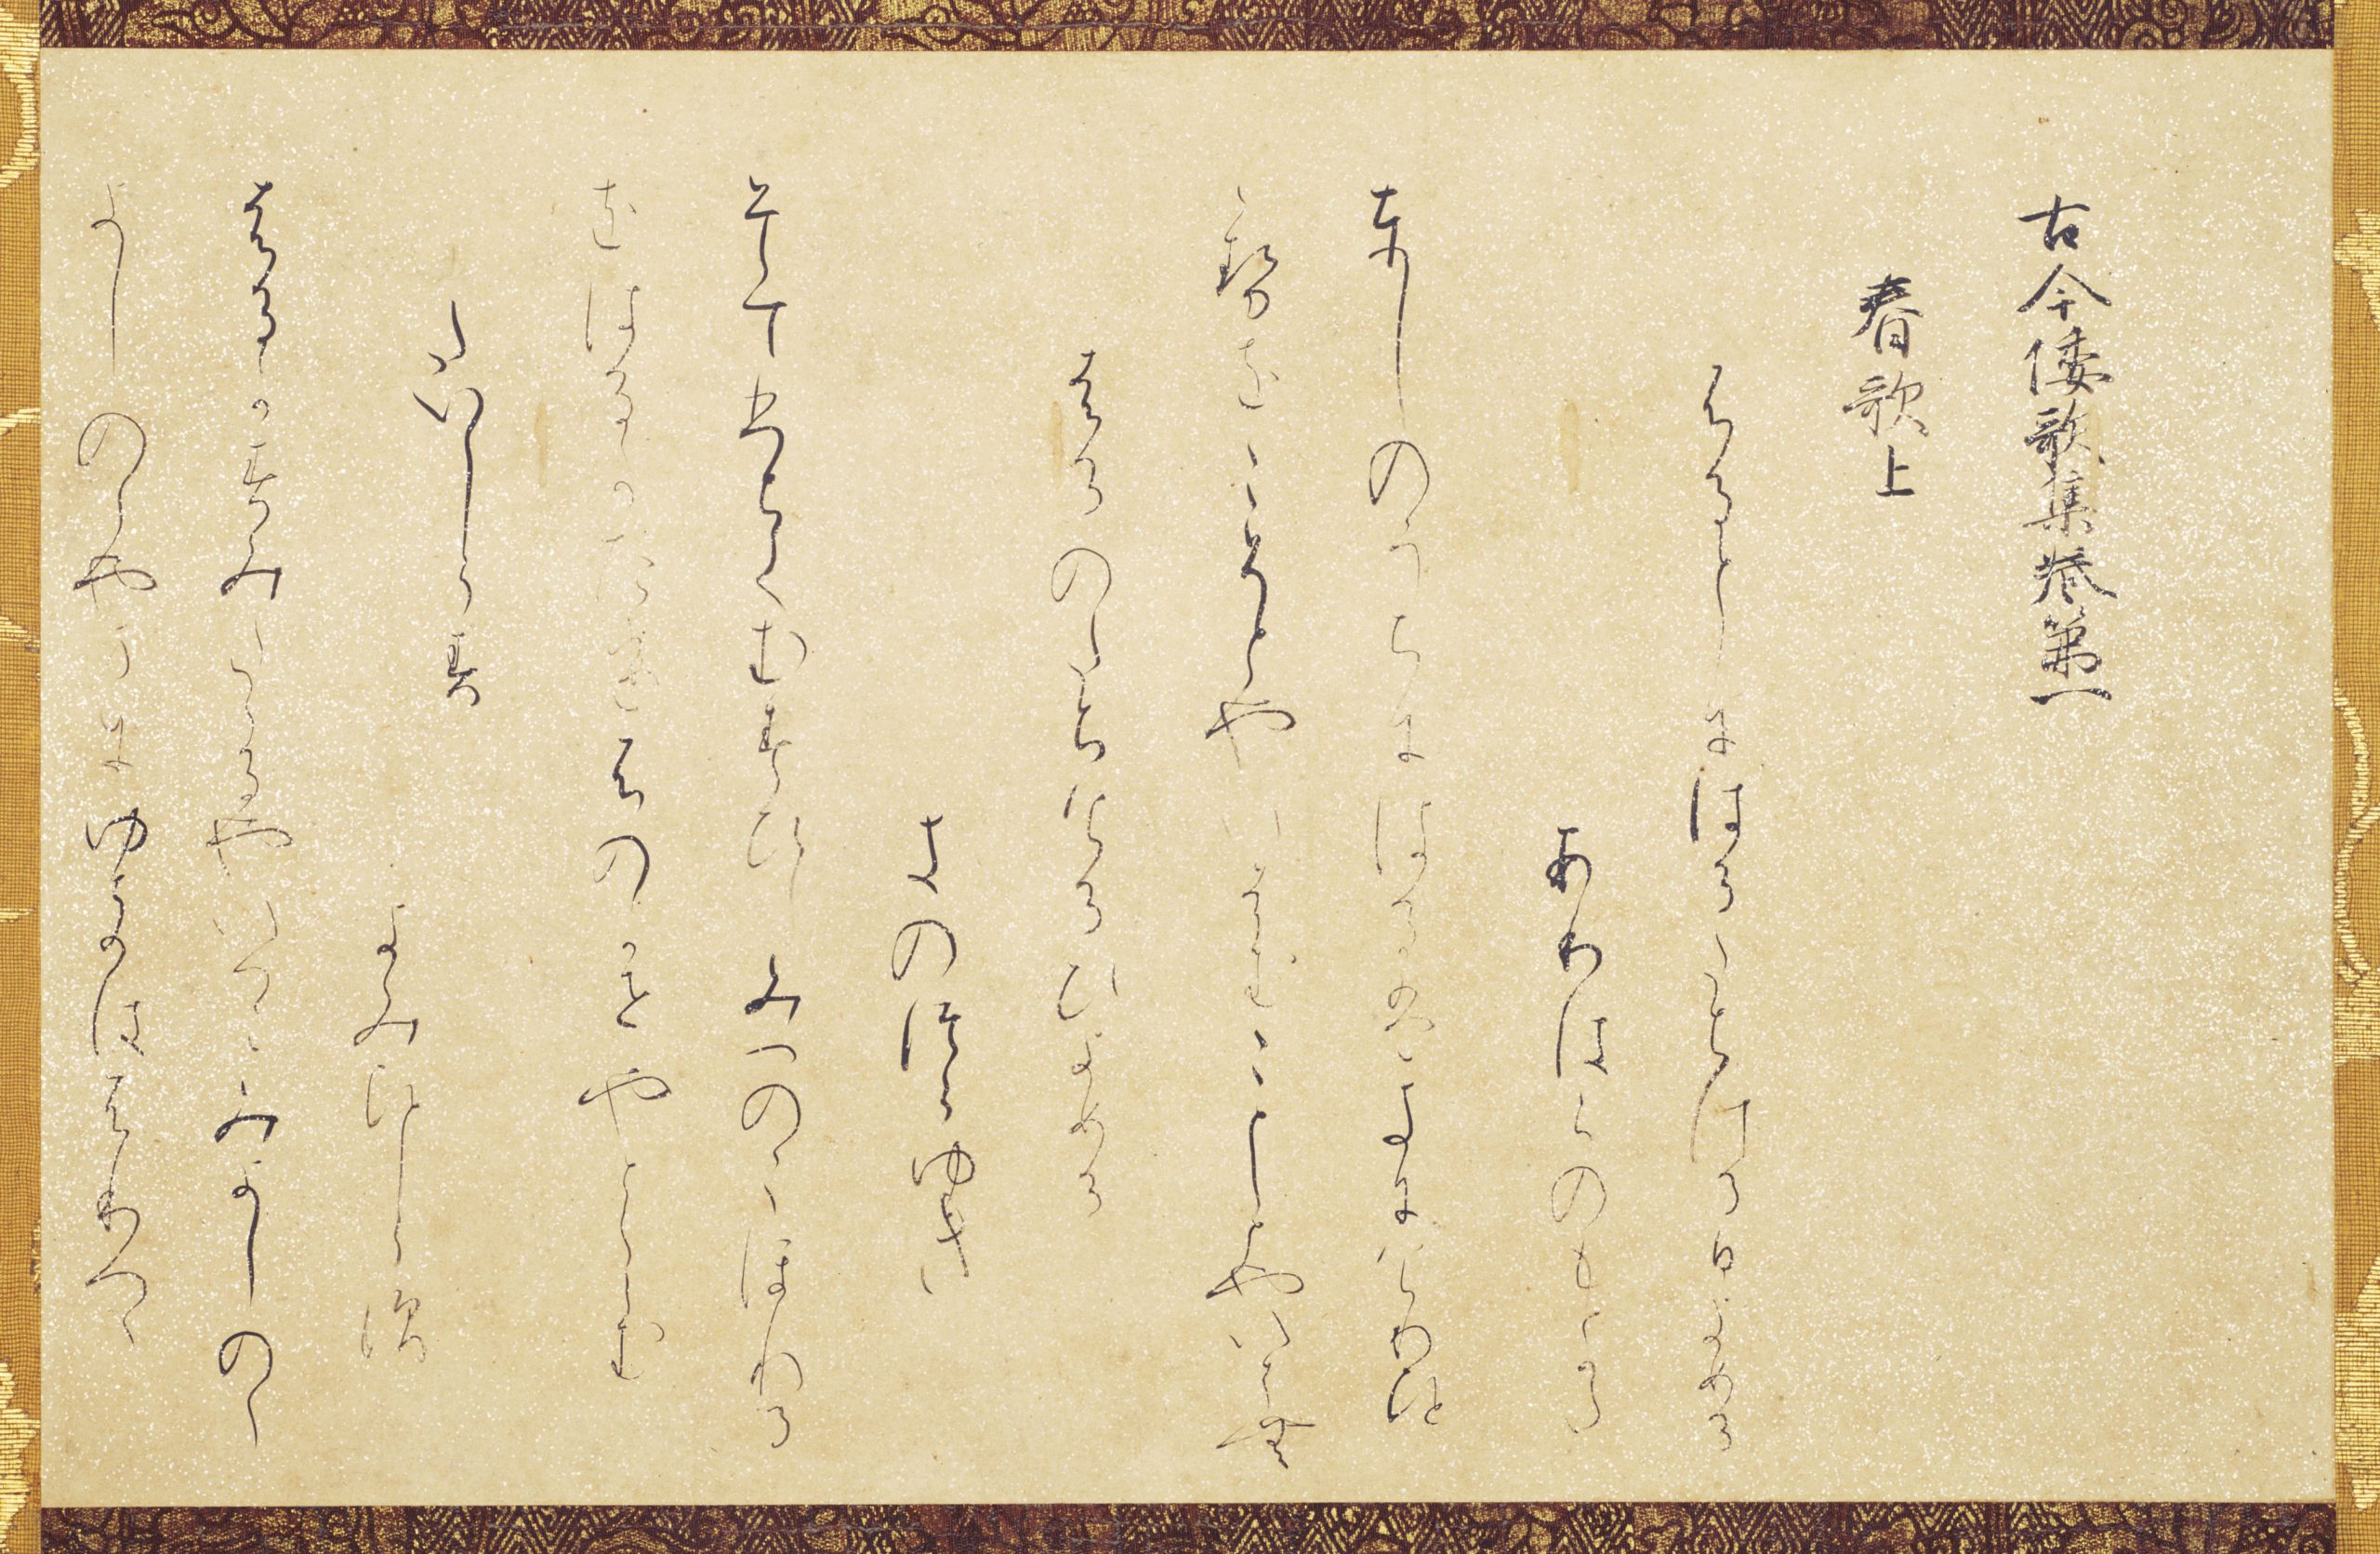 古今倭歌集巻第一
春歌上
ふるとしにはるたちける日よめる
ありはらのもとかた
としのうちにはるはきにけりひと
ゝせをこそとやいはむことしとやいはむ
はるのたちけるひよめる
きのつらゆき
そてひちてむすひしみつのこほれる
をはるかたつけふのかせやとくらむ
たいしらす
よみひとしらす
はるかすみたてるやいつこみよしの
よしのゝやまにゆきはふりつゝ